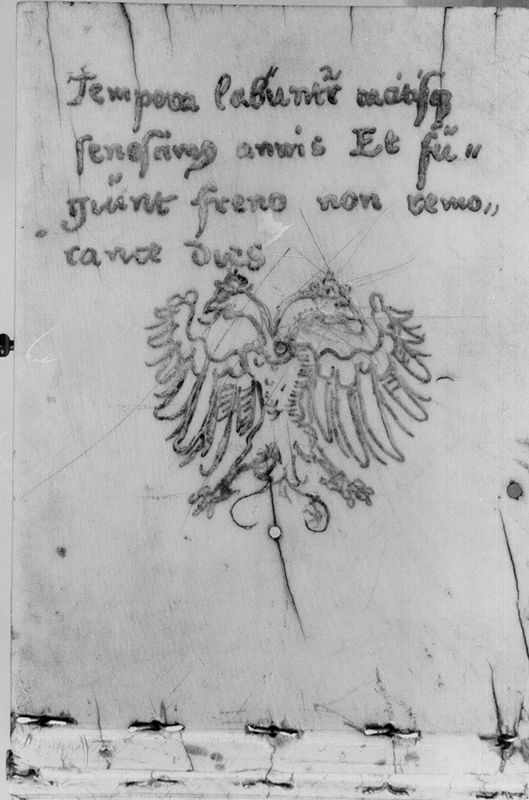 Tempora labünt᷑ tacitisqꝫ
senescimꝰ annis Et fü〃
giünt freno non remo〃
rante dies